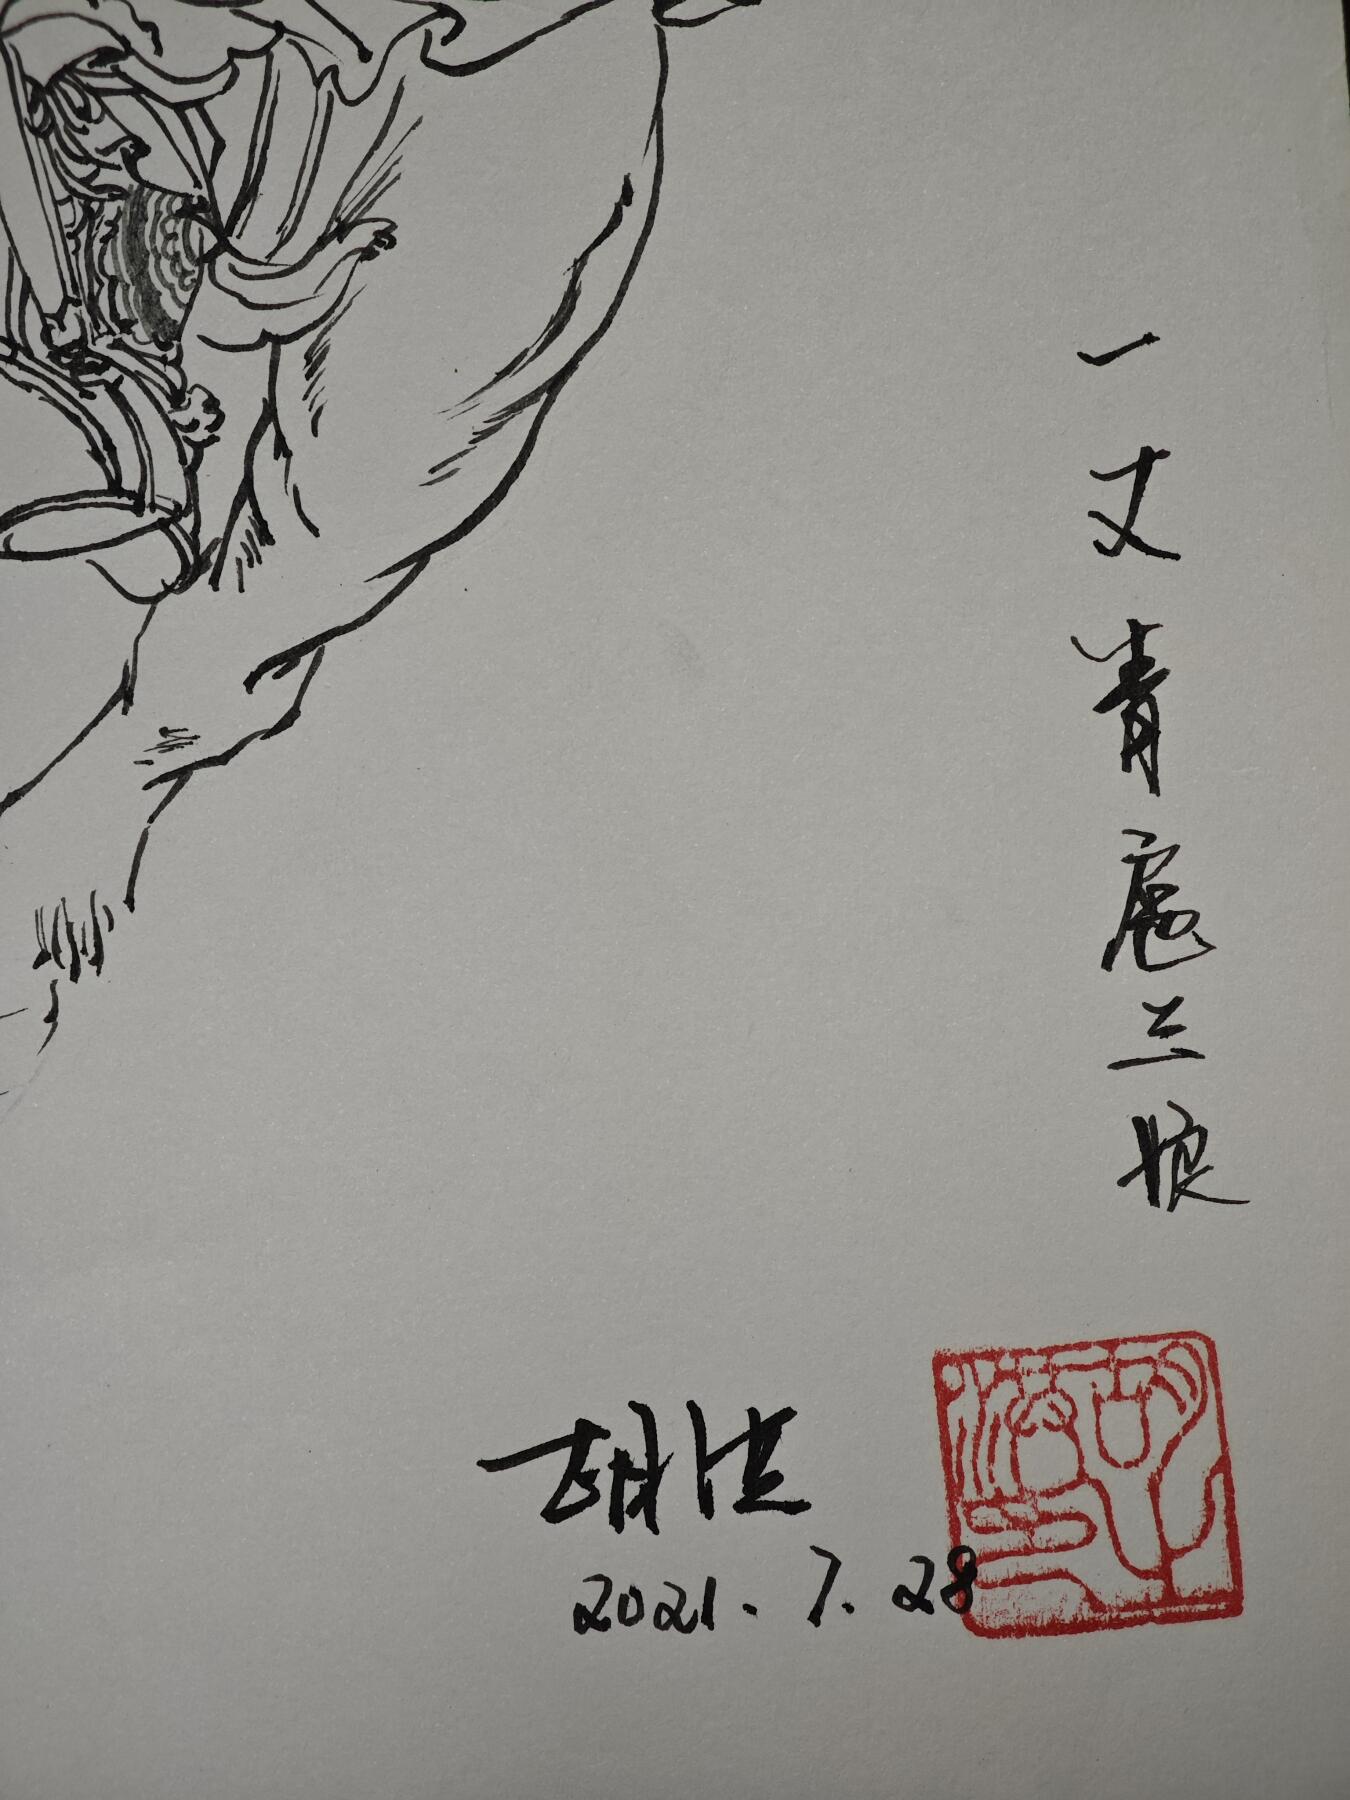 一丈青扈三娘
胡
2021.7.28